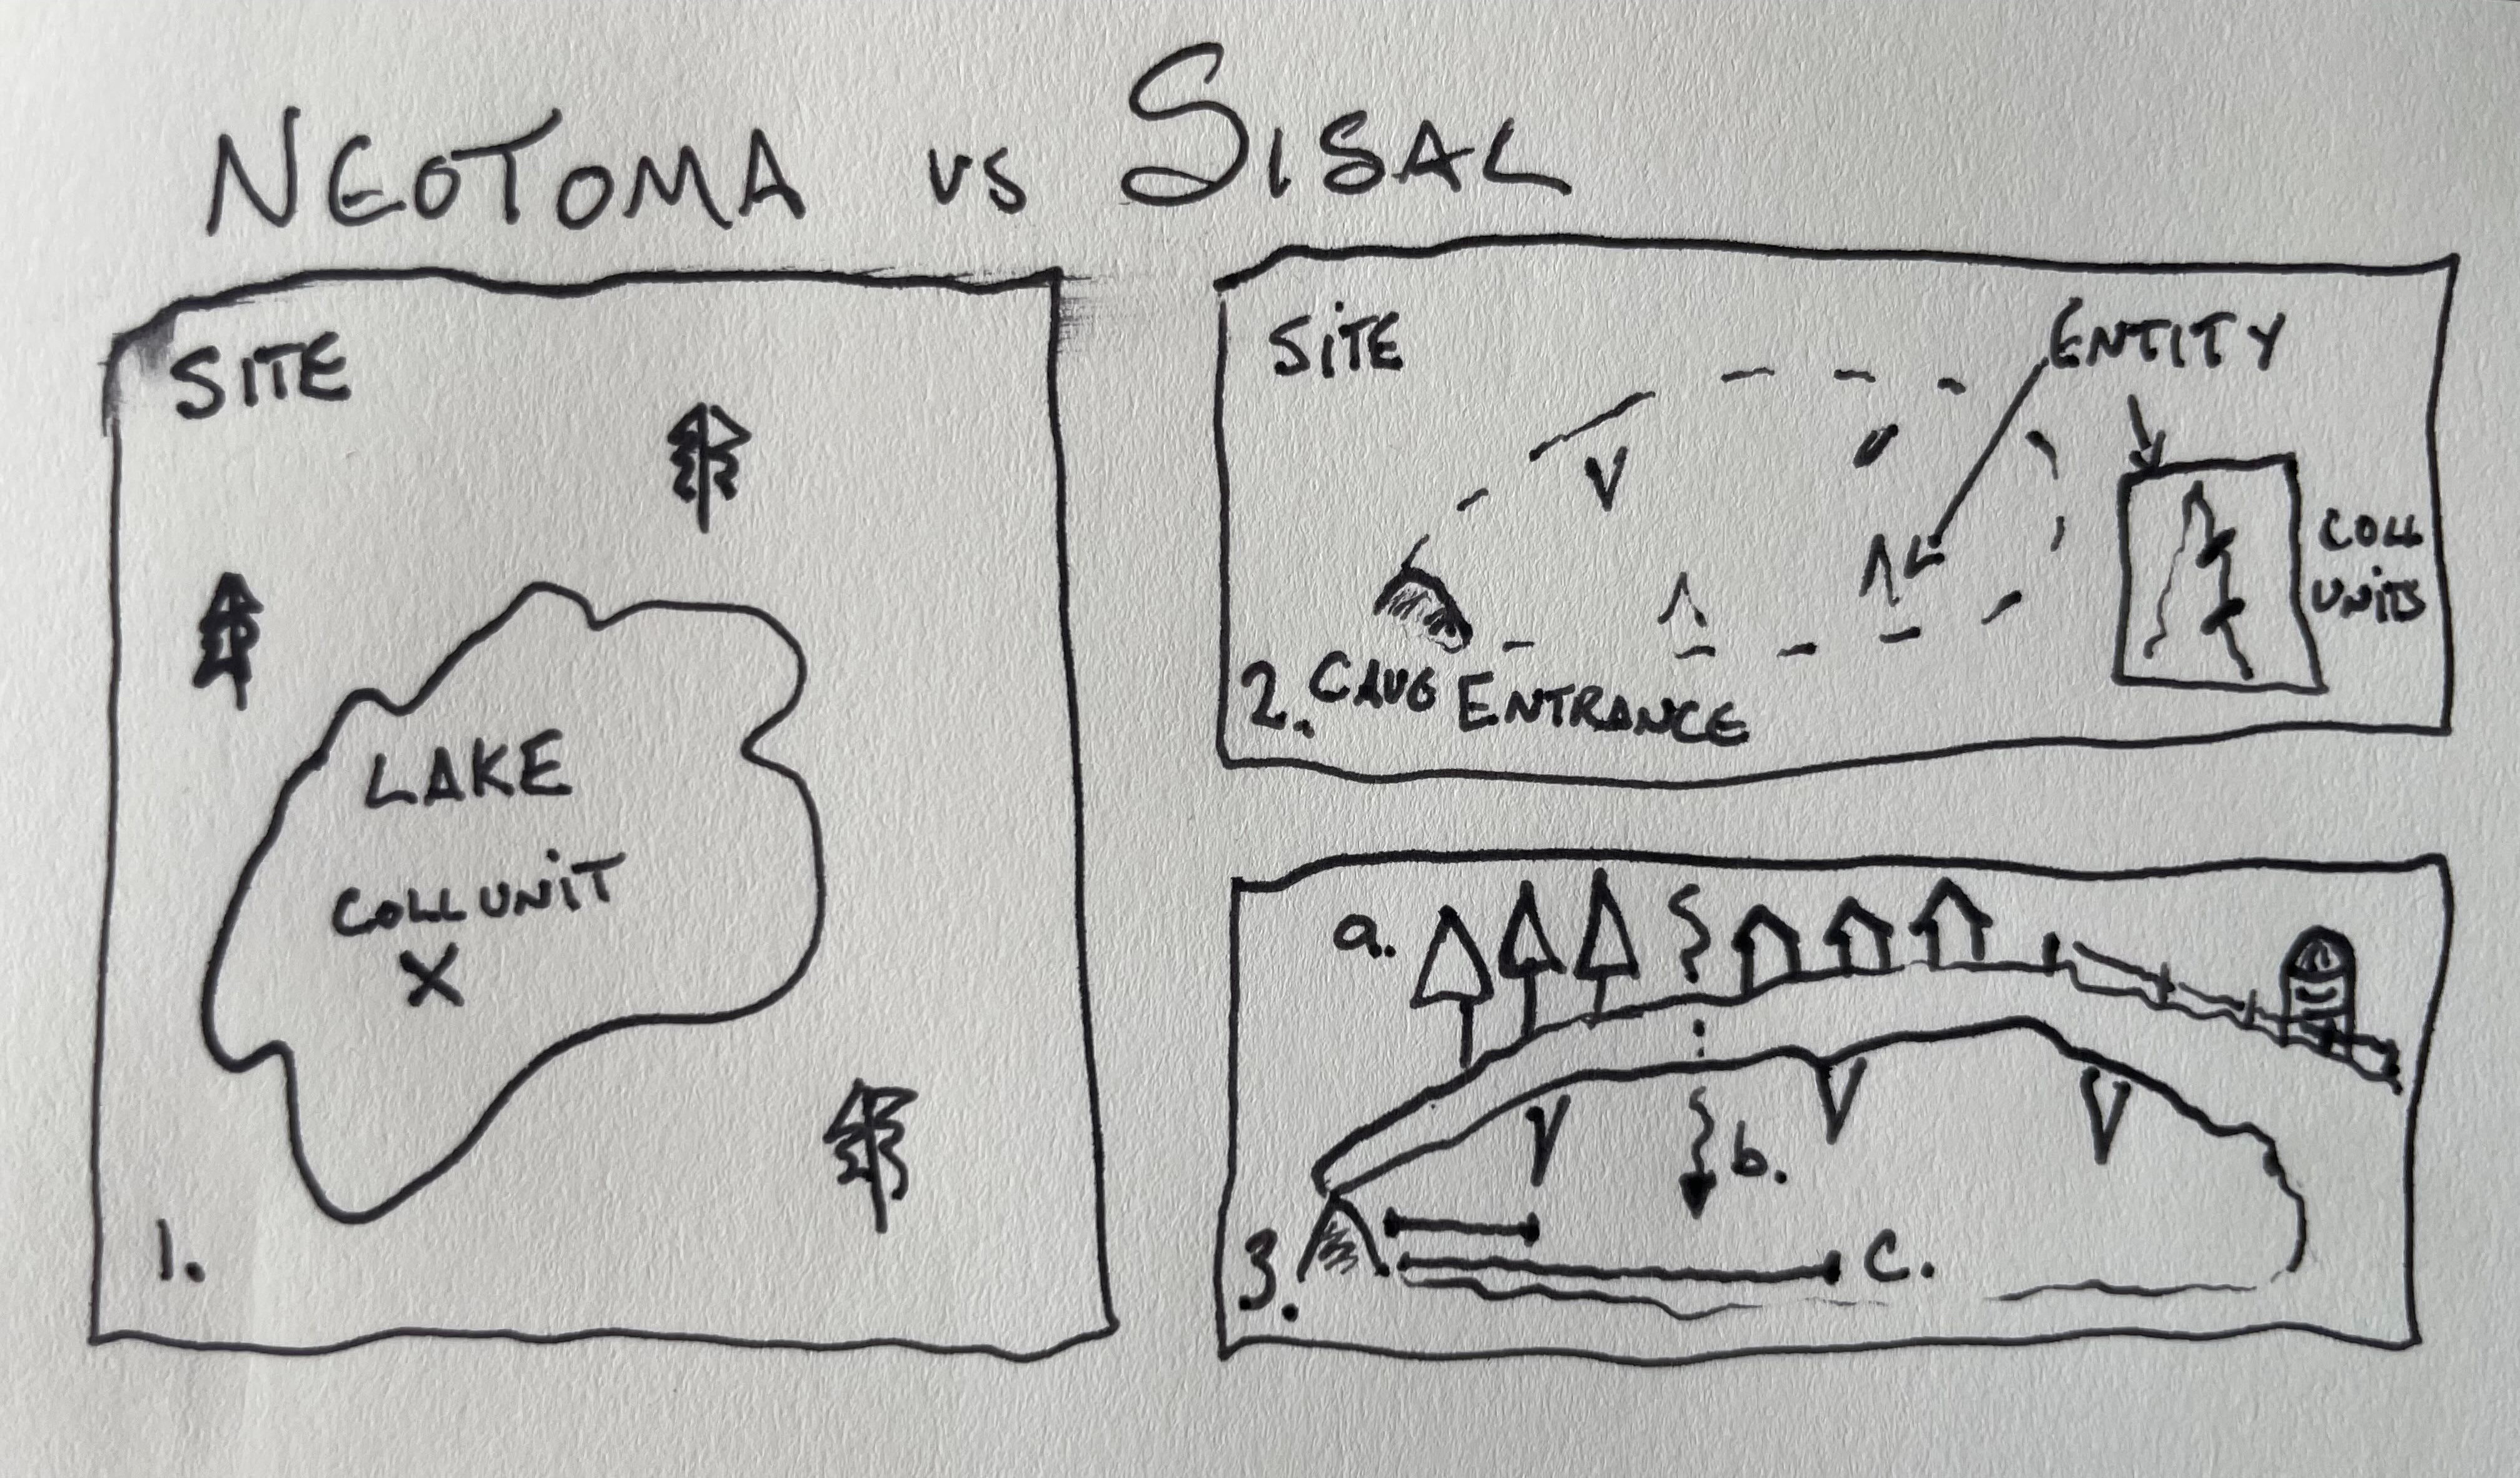 NEOTOMA vs SISAL
SITE
LAKE
COLL UNIT
X
1.
SITE
ENTITY
COLL
UNITS
2. CAVE ENTRANCE
a.
b.
c.
3.